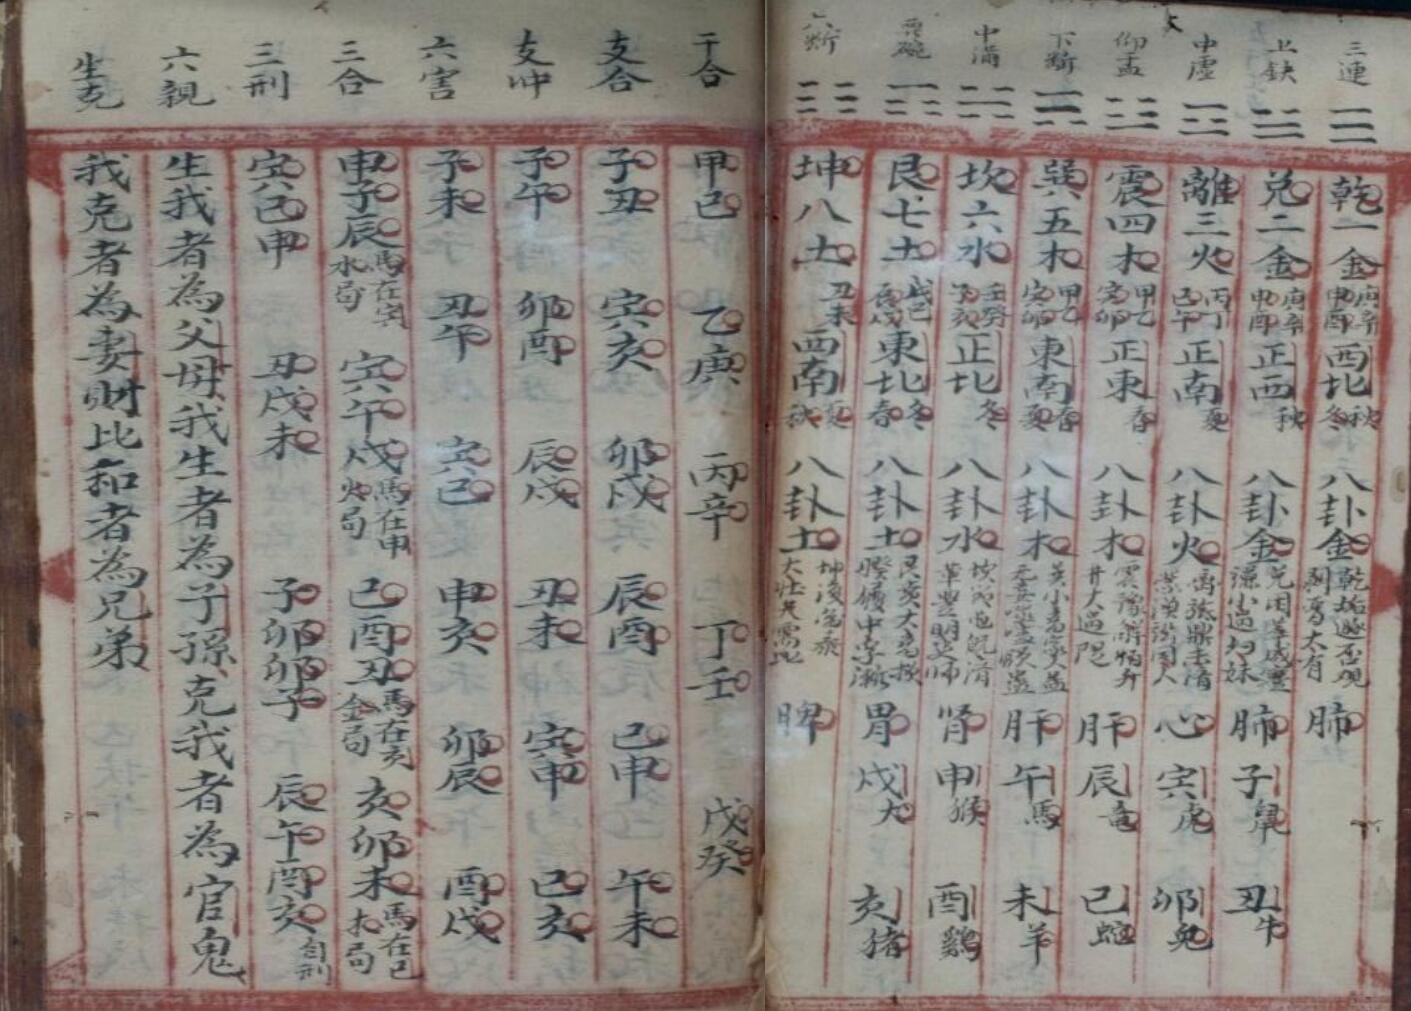 三連 乾一金 庚辛申酉 西北 秋冬 八卦金 乾姤遯否觀剝晉大有 肺
上缺 兌二金 庚辛申酉 正西 秋 八卦金 兌困萃咸蹇謙小過歸妹 肺 子鼠 丑牛
中虛 離三火 丙丁巳午 正南 夏 八卦火 心 寅虎 卯兔
仰盂 震四木 甲乙寅卯 正東 春 八卦木 震豫解恒升井大過隨 肝 辰竜 巳蛇
下斷 巽五木 甲乙寅卯 東南 春夏 八卦木 肝 午馬 未羊
中滿 坎六水 壬癸子亥 正北 冬 八卦水 肾 申猴 酉鷄
覆碗 艮七土 戊己辰戌 東北 冬春 八卦土 胃 戌犬 亥猪
六斷 坤八土 丑未 西南 夏秋 八卦土 脾
干合 甲己 乙庚 丙辛 丁壬 戊癸
支合 子丑 寅亥 卯戌 辰酉 巳申 午未
支冲 子午 卯酉 辰戌 丑未 寅申 巳亥
六害 子未 丑午 寅巳 申亥 卯辰 酉戌
三合 申子辰 馬在寅水局 寅午戌 馬在申火局 巳酉丑 馬在亥金局 亥卯未 馬在巳木局
三刑 寅巳申 丑戌未 子卯卯子 辰午酉亥 自刑
六親 生我者為父母我生者為子孫克我者為官鬼
生克 我克者為妻財比和者為兄弟